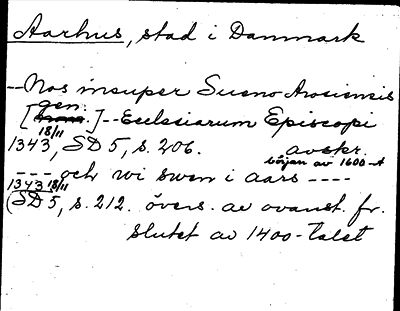 Aarhus, stad i Danmark
--Nos insuper Sueno Arosiensis
[gen.]--Ecclesiarum Episcopi
18/11
1343, SD 5, s. 206. avskr.
början av 1600-t
--- och wi swen i aars ----
1343 18/11
(SD 5, s. 212. övers. av ovanst. fr.
slutet av 1400-talet